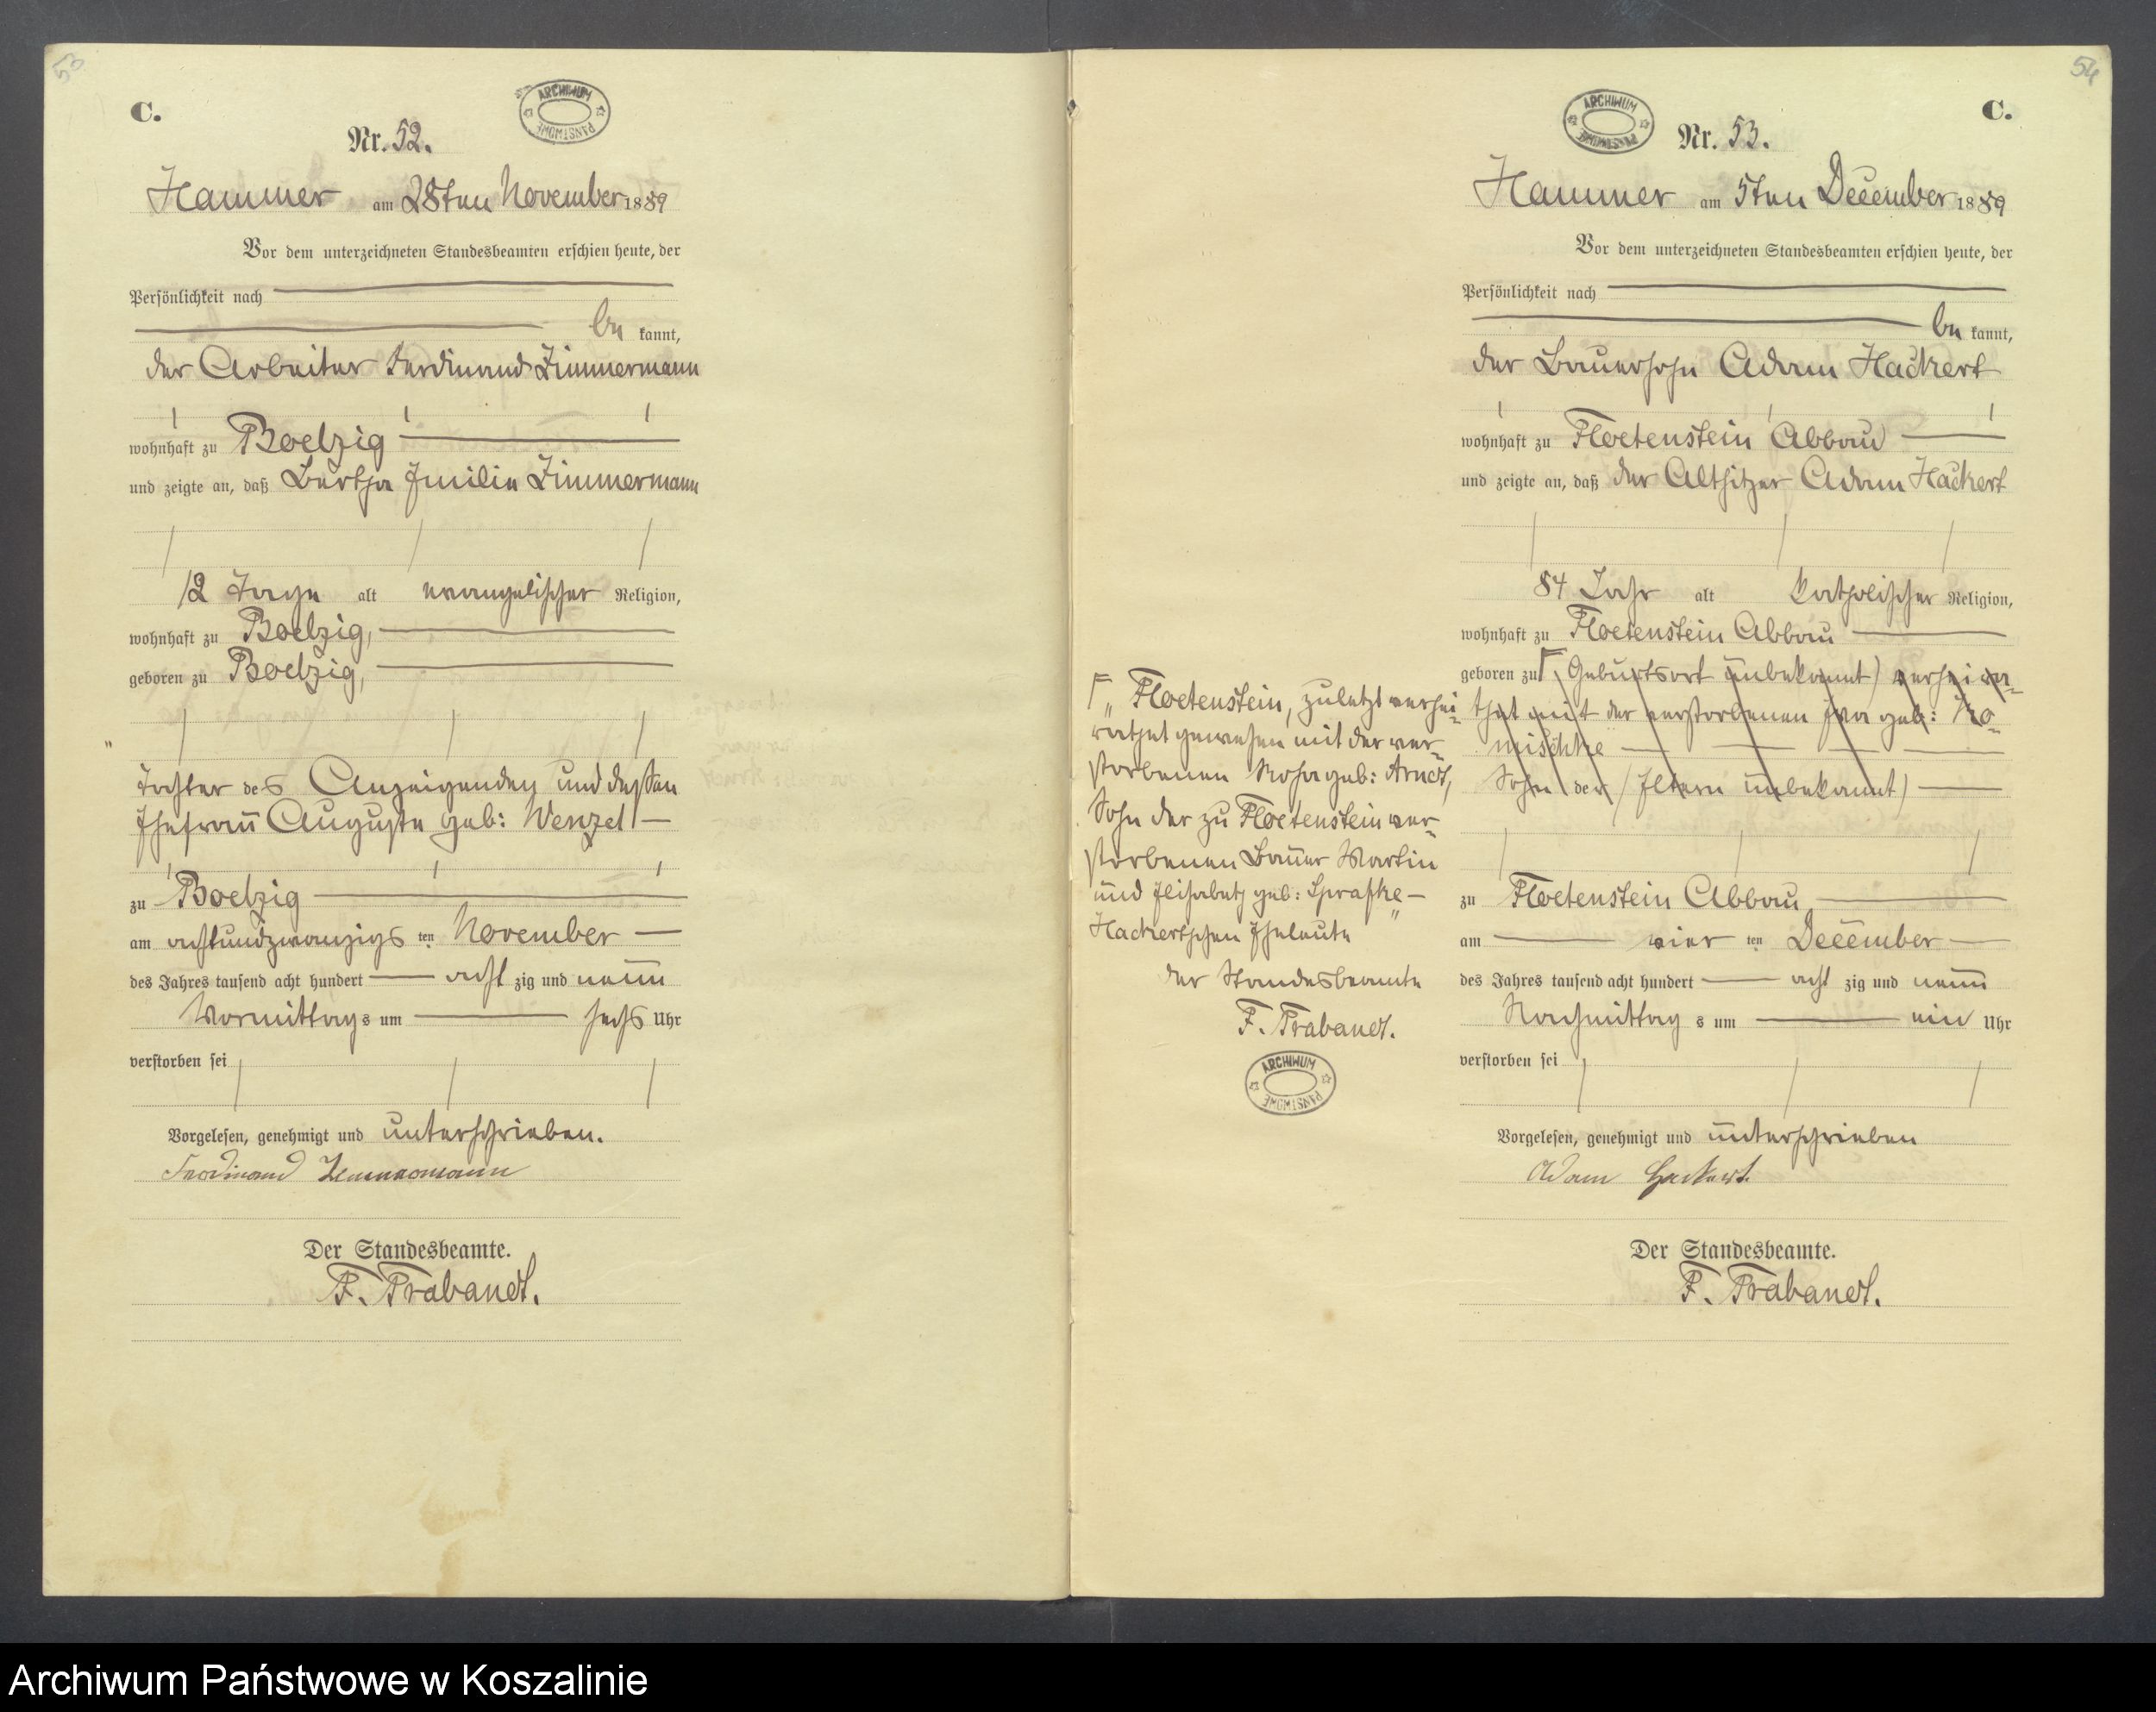 53
C.
ARCHIWUM PAŃSTWOWE
Nr. 52.
Hammer am 28ten November 1889
Vor dem unterzeichneten Standesbeamten erschien heute, der
Persönlichkeit nach
be kannt,
der Arbeiter Ferdinand Zimmermann
wohnhaft zu Boelzig
und zeigte an, daß Bertha Emilie Zimmermann
12 Tage alt evangelischer Religion,
wohnhaft zu Boelzig,
geboren zu Boelzig,
Tochter des Anzeigenden und dessen
Ehefrau Auguste geb: Wenzel
zu Boelzig
am achtundzwanzigs ten November
des Jahres tausend acht hundert acht zig und neun
Vormittags um sechs Uhr
verstorben sei
Vorgelesen, genehmigt und unterschrieben.
Ferdinand Zimmermann
Der Standesbeamte.
F. Trabandt.
54
C.
ARCHIWUM PAŃSTWOWE
Nr. 53.
Hammer am 5ten December 1889
Vor dem unterzeichneten Standesbeamten erschien heute, der
Persönlichkeit nach
be kannt,
der Bauersohn Adam Hackert
wohnhaft zu Floetenstein Abbau
und zeigte an, daß der Altsitzer Adam Hackert
84 Jahr alt katholischer Religion,
wohnhaft zu Floetenstein Abbau
geboren zu (Geburtsort unbekannt) verheira-
thet mit der verstorbenen Eva geb:
mischke
Sohn der (Eltern unbekannt)
zu Floetenstein Abbau
am vier ten December
des Jahres tausend acht hundert acht zig und neun
Nachmittag s um ein Uhr
verstorben sei
Vorgelesen, genehmigt und unterschrieben
Adam Hackert.
Der Standesbeamte.
F. Trabandt.
„Floetenstein, zuletzt verhei-
rathet gewesen mit der ver-
storbenen Rosa geb: Arndt,
Sohn der zu Floetenstein ver-
storbenen Bauer Martin
und Elisabeth geb:
Hackertschen Eheleute“
der Standesbeamte
F. Trabandt.
ARCHIWUM PAŃSTWOWE
Archiwum Państwowe w Koszalinie